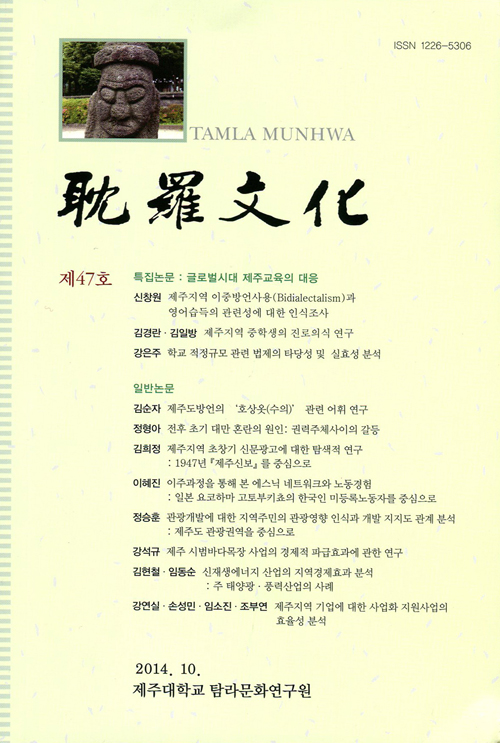 ISSN 1226-5306
TAMLA MUNHWA
耽羅文化
제47호
특집논문 : 글로벌시대 제주교육의 대응
신창원 제주지역 이중방언사용(Bidialectalism)과
영어습득의 관련성에 대한 인식조사
김경란 · 김일방 제주지역 중학생의 진로의식 연구
강은주 학교 적정규모 관련 법제의 타당성 및 실효성 분석
일반논문
김순자 제주도방언의 ‘호상옷(수의)’ 관련 어휘 연구
정형아 전후 초기 대만 혼란의 원인: 권력주체사이의 갈등
김희정 제주지역 초창기 신문광고에 대한 탐색적 연구
: 1947년 『제주신보』를 중심으로
이혜진 이주과정을 통해 본 에스닉 네트워크와 노동경험
: 일본 요코하마 고토부키쵸의 한국인 미등록노동자를 중심으로
정승훈 관광개발에 대한 지역주민의 관광영향 인식과 개발 지지도 관계 분석
: 제주도 관광권역을 중심으로
강석규 제주 시범바다목장 사업의 경제적 파급효과에 관한 연구
김현철 · 임동순 신재생에너지 산업의 지역경제효과 분석
: 주 태양광 · 풍력산업의 사례
강연실 · 손성민 · 임소진 · 조부연 제주지역 기업에 대한 사업화 지원사업의
효율성 분석
2014. 10.
제주대학교 탐라문화연구원